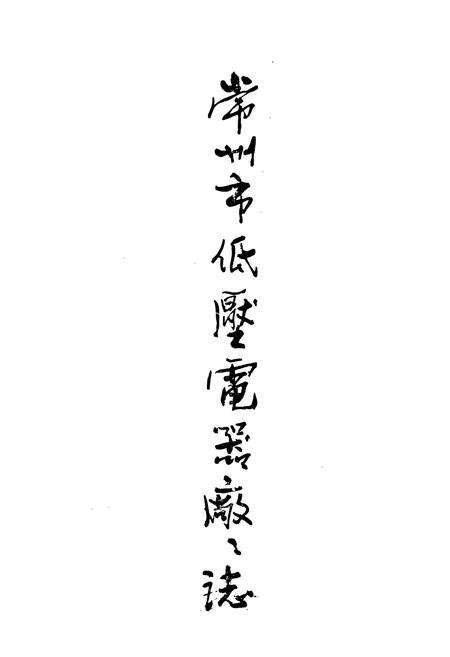 常州市低壓電器廠〻誌